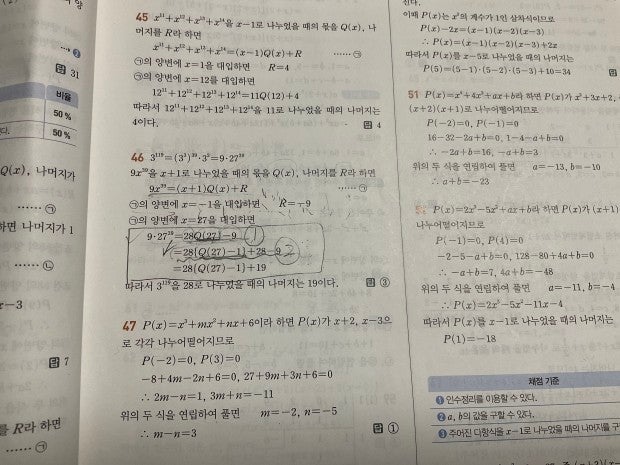 31
비율
50 %
50 %
Q(x), 나머지가
…… ㉠
하면 나머지가 1
…… ㉡
x-3
답 7
를 R라 하면
…… ㉠
45 x¹¹+x¹²+x¹³+x¹⁴을 x-1로 나누었을 때의 몫을 Q(x), 나
머지를 R라 하면
x¹¹+x¹²+x¹³+x¹⁴=(x-1)Q(x)+R …… ㉠
㉠의 양변에 x=1을 대입하면 R=4
㉠의 양변에 x=12를 대입하면
12¹¹+12¹²+12¹³+12¹⁴=11Q(12)+4
따라서 12¹¹+12¹²+12¹³+12¹⁴을 11로 나누었을 때의 나머지는
4이다. 답 4
46 3¹¹⁹=(3³)³⁹·3²=9·27³⁹
9x³⁹을 x+1로 나누었을 때의 몫을 Q(x), 나머지를 R라 하면
9x³⁹=(x+1)Q(x)+R …… ㉠
㉠의 양변에 x=-1을 대입하면 R=-9
㉠의 양변에 x=27을 대입하면
9·27³⁹=28Q(27)-9 ①
=28{Q(27)-1}+28-9 ②
=28{Q(27)-1}+19
따라서 3¹¹⁹을 28로 나누었을 때의 나머지는 19이다. 답 ③
47 P(x)=x³+mx²+nx+6이라 하면 P(x)가 x+2, x-3으
로 각각 나누어떨어지므로
P(-2)=0, P(3)=0
-8+4m-2n+6=0, 27+9m+3n+6=0
∴ 2m-n=1, 3m+n=-11
위의 두 식을 연립하여 풀면 m=-2, n=-5
∴ m-n=3 답 ①
이때 P(x)는 x³의 계수가 1인 삼차식이므로
P(x)-2x=(x-1)(x-2)(x-3)
∴ P(x)=(x-1)(x-2)(x-3)+2x
따라서 P(x)를 x-5로 나누었을 때의 나머지는
P(5)=(5-1)·(5-2)·(5-3)+10=34
51 P(x)=x⁴+4x³+ax+b라 하면 P(x)가 x²+3x+2,
(x+2)(x+1)로 나누어떨어지므로
P(-2)=0, P(-1)=0
16-32-2a+b=0, 1-4-a+b=0
∴ -2a+b=16, -a+b=3
위의 두 식을 연립하여 풀면 a=-13, b=-10
∴ a+b=-23
P(x)=2x³-5x²+ax+b라 하면 P(x)가 (x+1)
나누어떨어지므로
P(-1)=0, P(4)=0
-2-5-a+b=0, 128-80+4a+b=0
∴ -a+b=7, 4a+b=-48
위의 두 식을 연립하여 풀면 a=-11, b=-4
∴ P(x)=2x³-5x²-11x-4
따라서 P(x)를 x-1로 나누었을 때의 나머지는
P(1)=-18
채점 기준
❶ 인수정리를 이용할 수 있다.
❷ a, b의 값을 구할 수 있다.
❸ 주어진 다항식을 x-1로 나누었을 때의 나머지를 구